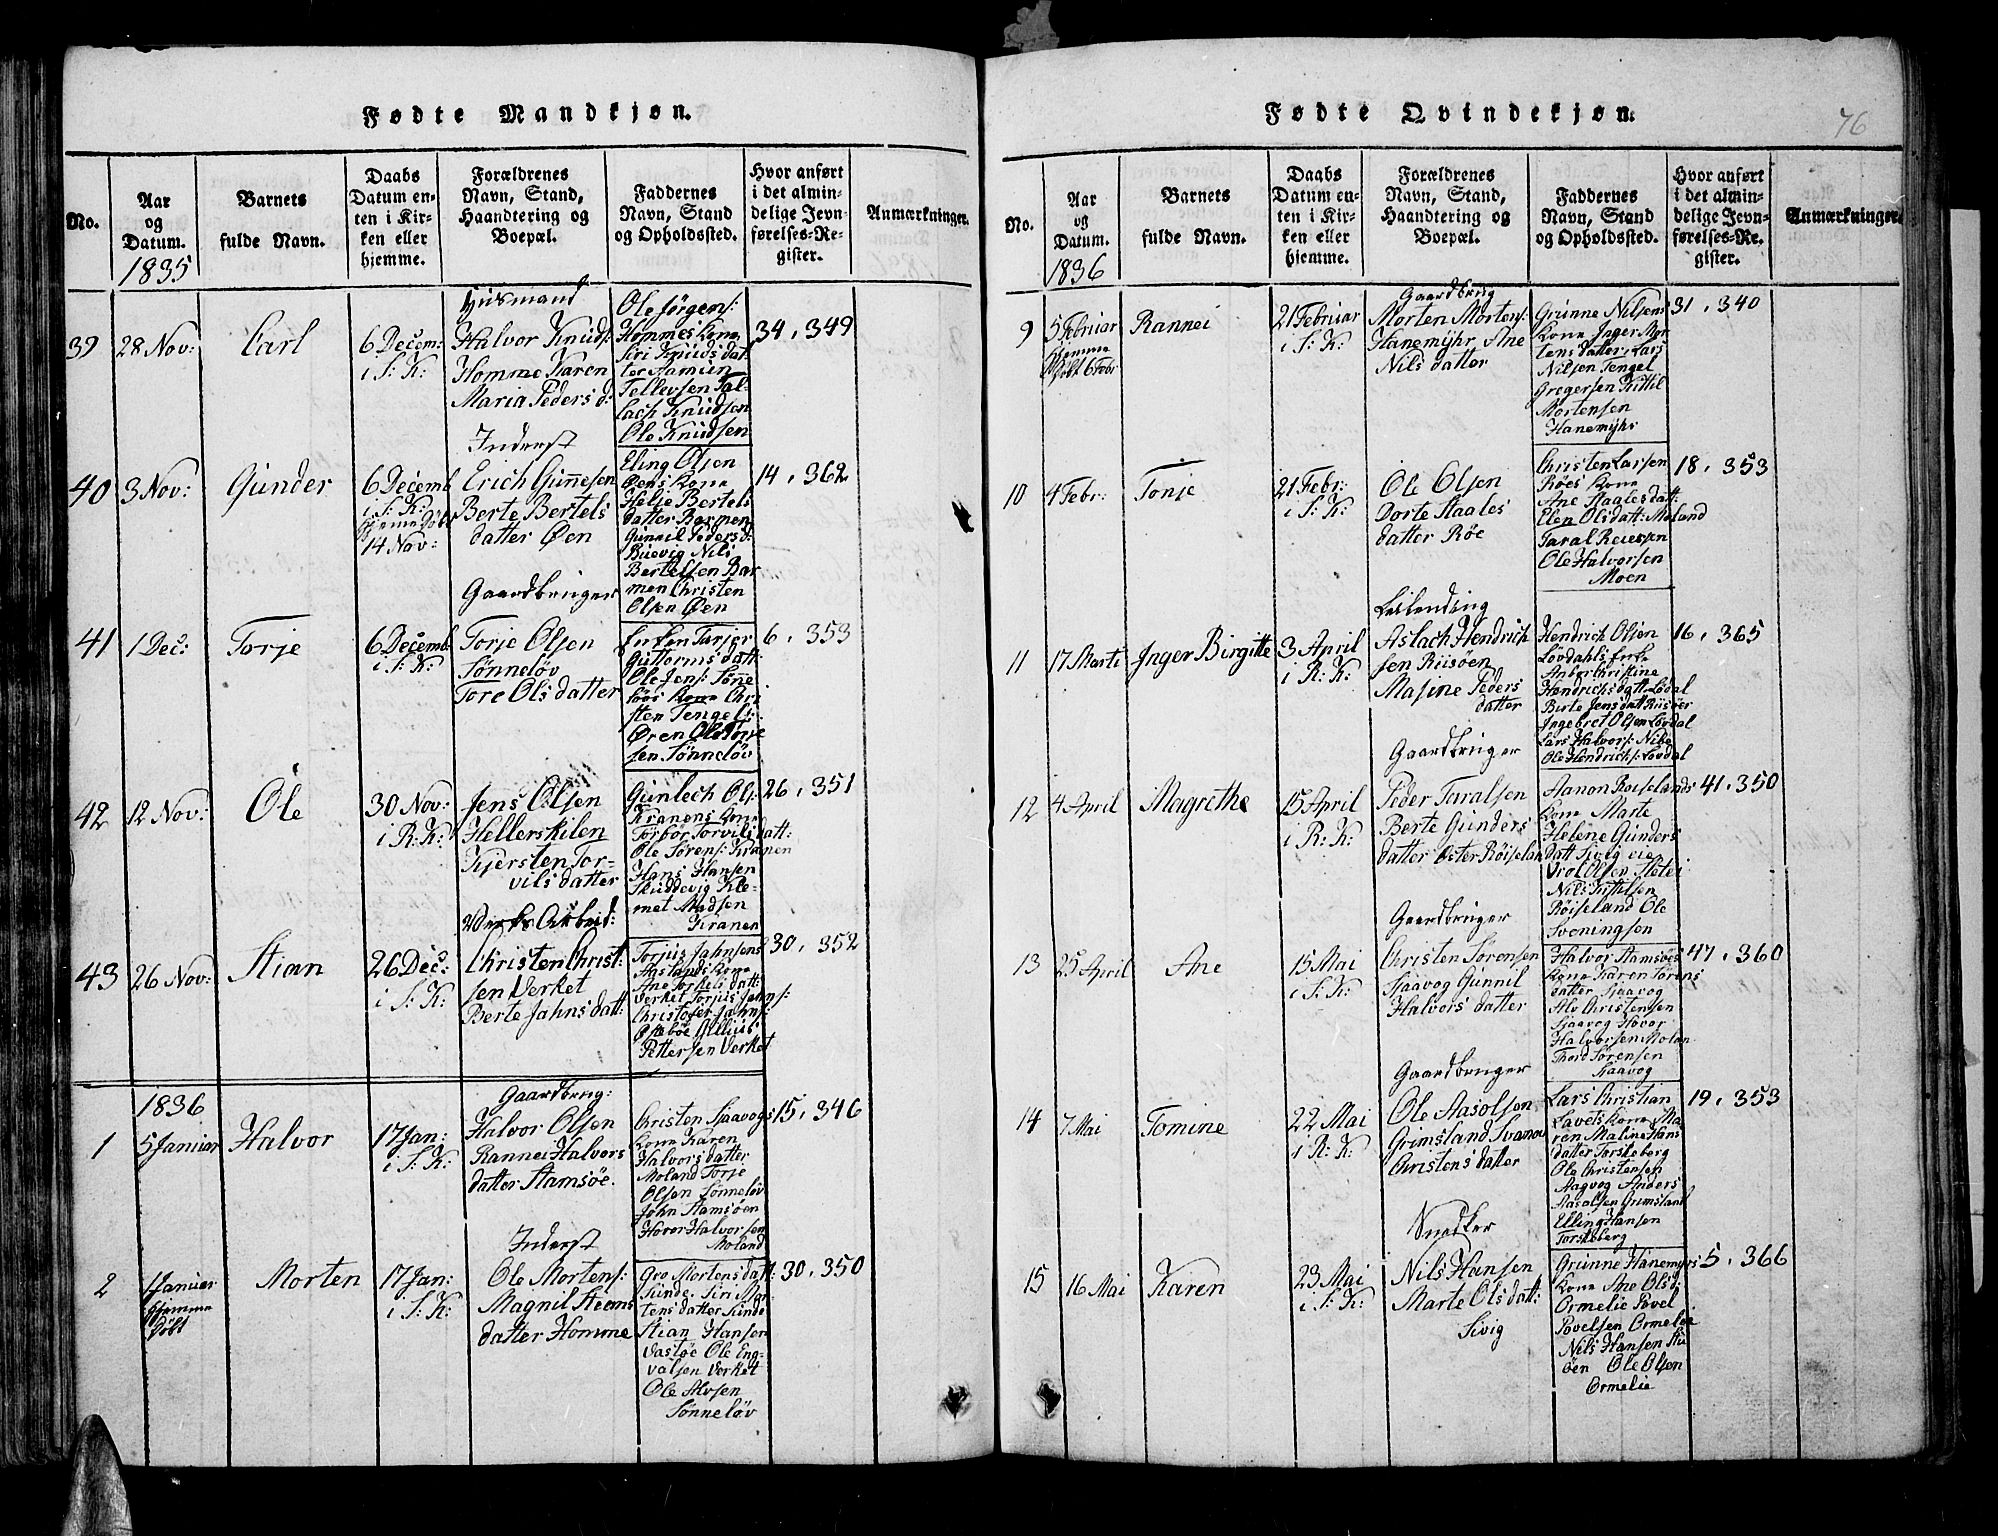 Fødte Mandkjøn.
No.
Aar
og
Datum.
1835
Barnets
fulde Navn.
Daabs
Datum en-
ten i Kir-
ken eller
hjemme.
Forældrenes
Navn, Stand,
Haandtering og
Boepæl.
Faddernes
Navn, Stand
og Opholdssted.
Hvor anført
i det almin-
delige Jevn-
førelses-Re-
gister.
Anmærkninger.
39
28 Nov:
Carl
6 Decem:
i S: K:
Huusmand
Halvor Knuds:
Homme Karen
Maria Peders d:
Ole Jørgens:
Hommes Kone
Siri Knuds dat
ter Aamun
Tellevsen Tal-
lach Knudsen
Ole Knudsen
34, 349
40
3 Nov:
Gunder
6 Decemb
i S: K:
Hjemme Døbt
14 Nov:
Inderst
Erich Gunnesen
Berte Bertels
datter Øen
Eling Olsen
Øens Kone
Helje Bertels
datter Barmen
Gunnil Peders d:
Buevig Nils
Bertelsen Bar
men Christen
Olsen Øen
14, 362
41
1 Dec:
Torje
6 Decemb
i S: K:
Gaardbruger
Torje Olsen
Sønneløv
Tore Olsdatter
Enken Tarjer
Guttorms datt:
Ole Jens: Sønne
løvs Kone Chri
sten Tengels:
Øren Ole Torje
sen Sønneløv
6, 353
42
12 Nov:
Ole
30 Nov:
i R: K:
Jens Olsen
Hellerskilen
Kjersten Tor-
vilsdatter
Gunlech Ols:
Kranens Kone
Torbør Torvils datt:
Ole Sørens: Kranen
Hans Hansen
Skuddevig Kle-
met Madsen
Kranen
26, 351
43
26 Nov:
Stian
26 Dec:
i S: K:
Verks Arbeid:
Christen Christ:
sen Verket
Berte Jahns datt:
Torjus Jahnsens
Aaslands Kone
Ane Torkels datt:
Verket Torjus Jahns:
Christofer Jahns:
Østebøe Ollius
Pettersen Verket
30, 352
1836
1
5 Januar
Halvor
17 Jan:
i S: K:
Gaardbrug:
Halvor Olsen
Rannei Halvors
datter Stamsøe.
Christen Sjaavogs
Kone Karen
Halvorsdatter
Moland Torje
Olsen Sønneløv
John Stamsøen
Hover Halvorsen
Moland
15, 346
2
1 Januar
Hjemme
Døbt
Morten
17 Jan:
i S: K:
Inderst
Ole Mortens:
Magnil Steens
datter Homme
Gro Mortens datt:
Sunde. Siri Mor
tens datter Sunde
Stian Hansen
Vastøe Ole Eng-
valsen Verket
Ole Alvsen
Sønneløv
30, 350
Fødte Qvindekjøn.
76
No.
Aar
og
Datum.
1836
Barnets
fulde Navn.
Daabs
Datum en-
ten i Kir-
ken eller
hjemme.
Forældrenes
Navn, Stand,
Haandtering og
Boepæl.
Faddernes
Navn, Stand
og Opholdssted.
Hvor anført
i det almin-
delige Jevn-
førelses-Re-
gister.
Anmærkninger.
9
5 Februar
Hjemme
Døbt 6 Febr
Rannei
21 Februar
i S: K:
Gaardbrug
Morten Mortens:
Hanemyhr Ane
Nils datter
Grunne Nilsens
Kone Inger Mor
tensdatter, Lars
Nilsen Tengel
Gregersen Kittil
Mortensen
Hanemyhr
31, 340
10
4 Febr:
Tonje
21 Febr:
i S: K:
Ole Olsen
Dorte Staales
datter Røe
Christen Larsen
Røes Kone
Ane Staales datt:
Elen Olsdatt: Moland
Taral Reiersen
Ole Halvorsen
Moen
18, 353
11
17 Marti
Inger Birgitte
3 April
i R: K:
Leilending
Aslach Hendrich
sen Riisøen
Masine Peders
datter
Hendrich Olsen
Løvdahls Enke
Anbor Christine
Hendrichs datt Lødal
Birte Jens datt Riisøer
Ingebret Olsen Løvdal
Lars Halvors: Nibe
Ole Hendrichs: Løvdal
16, 365
12
4 April
Magrethe
15 April
i R: K:
Gaardbruger
Peder Taralsen
Berte Gunders
datter Oster Røiselan
Hanon Røiselands
Kone Marte
Helene Gunders
datt Sivig eie
Vrol Olsen Stetei
Nils Kittilsen
Røiseland Ole
Svenningsen
41, 350
13
25 April
Ane
15 Mai
i S: K:
Gaardbruger
Christen Sørensen
Sjaavog Gunnil
Halvors datter
Halvor Stamsøes
Kone Karen Sørens
datter Sjaavog
Alv Christensen
Sjaavog Hovor
Halvorsen Molan
Thord Sørensen
Saavog
47, 360
14
7 Mai
Tomine
22 Mai
i R: K:
Gaardbruger
Ole Aasolsen
Grimsland Svanou
Christens datter
Lars Christian
Lavets Kone Ma
ren Maline Hans
datter Torskeberg
Ole Christensen
Aagvog Anders
Aasolsen Grimsland
Elling Hansen
Torskeberg
19, 353
15
16 Mai
Karen
23 Mai
i S: K:
Snedker
Nils Hansen
Marte Olsdatt:
Sivig
Grunne Hanemyrs
Kone Ane Olsd:
Ormelie Povel
Povelsen Ormelie
Nils Hansen Stu
øen Ole Olsen
Ormelie
5, 366